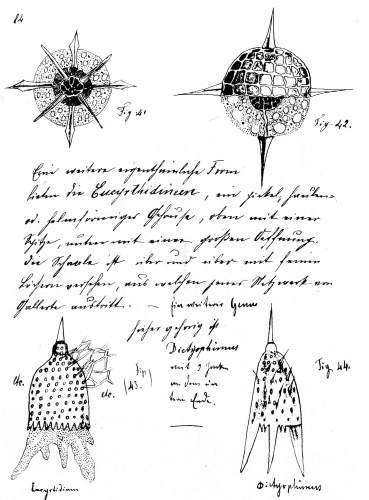 84
Fig. 41.
Fig. 42.
Eine weitere eigenthümliche Form
bieten die Eucyrthidineen, ein zirkel, hauben-
od. helmförmiger Gehäuse, oben mit einer
Spitze, unten mit einer großen Oeffnung.
Die Schaale ist über und über mit feinen
Löchern versehen, aus welchen jenes Netzwerk von
Gallerte austritt. — Ein weiteres Genus
hieher gehörig ist
Dictyophimus
mit 3 Zacken
an dem un
tern Ende.
etc.
etc.
Fig.
(43.
Fig. 44.
Eucyrtidium
Dictyophimus